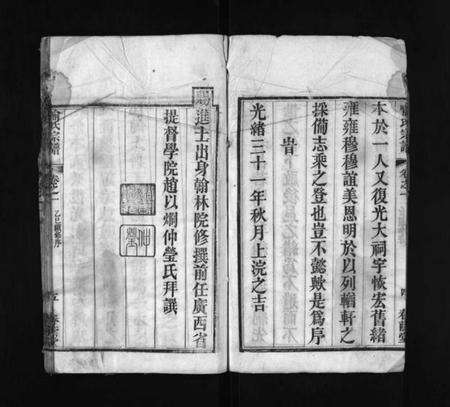 本於一人又復光大祠宇恢宏舊緒
雍雍穆穆誼美恩明於以列輶軒之
採備志乘之登也豈不懿歟是爲序
旹
光緒三十一年秋月上浣之吉
賜進士出身翰林院修撰前任廣西省
提督學院趙以烱仲瑩氏拜譔
氏宗譜
卷之一
五